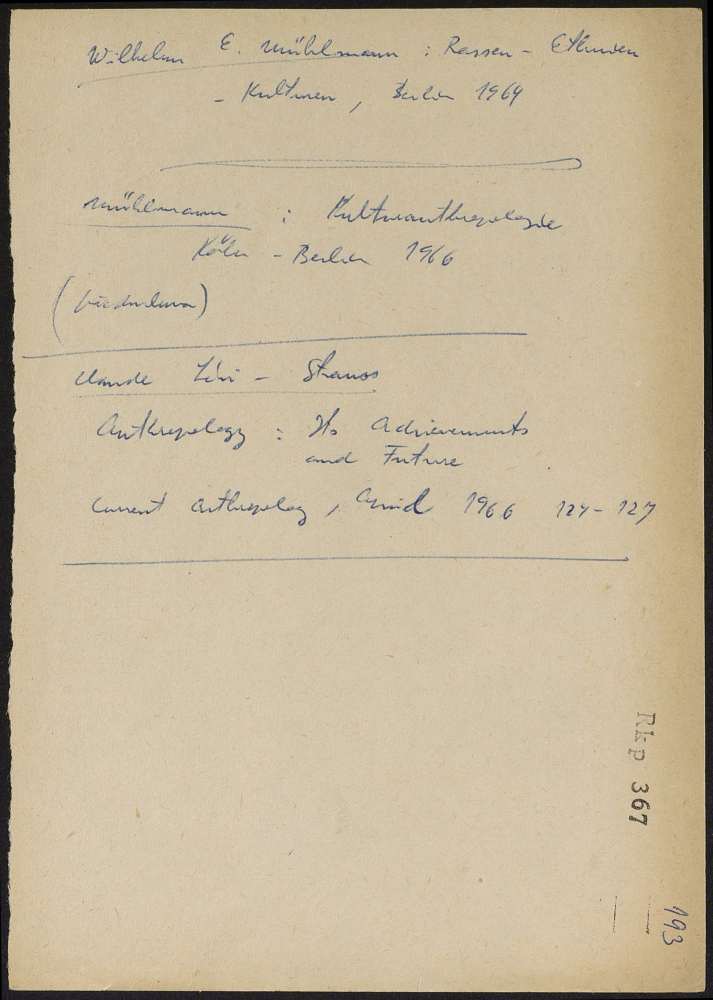 Wilhelm E. Mühlmann : Rassen - Ethnien
- Kulturen, Berlin 1964
Mühlmann : Kulturanthropologie
Köln - Berlin 1966
Claude Lévi - Strauss
Anthropology : Its Achievements
and Future
Current Anthropology, April 1966 124 - 127
Rkp 367
193